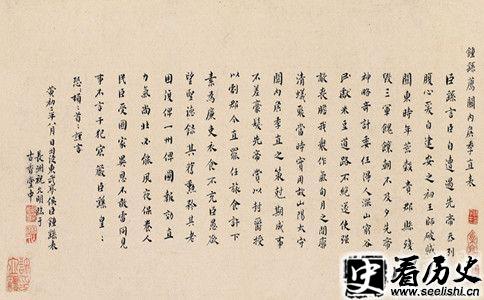 鍾繇薦關內侯季直表
臣繇言臣自遭遇先帝忝列
腹心爰自建安之初王師破賊
關東時年荒穀貴郡縣殘
毀三軍餽饟朝不及夕先帝
神略奇計委任得人深山窮谷
民獻米豆道路不絕遂使強
敵喪膽我眾作氣旬月之間廓
清蟻聚當時實用故山陽太守
關內侯季直之策尅期成事
不差豪髮先帝賞以封爵授
以劇郡今直罷任旅食許下
素為廉吏衣食不充臣愚欲
望聖德錄其舊勳矜其老
困復俾一州俾圖報効直
力氣尚壯必能夙夜保養人
民臣受國家異恩不敢雷同見
事不言干犯宸嚴臣繇皇:
恐:頓:首:謹言
黃初二年八月日司徒東武亭侯臣鍾繇表
長洲祝允明臨于
古香堂中
史
看历史
www.seelishi.cn